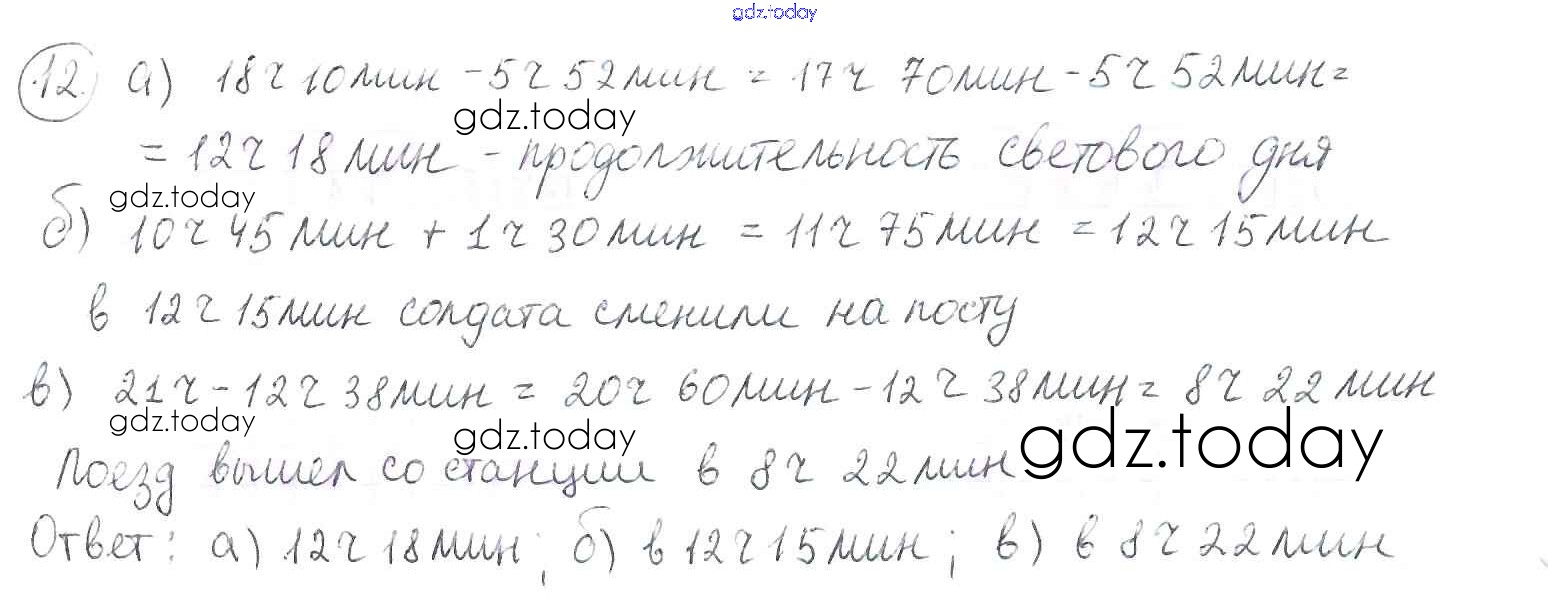 gdz.today
12. а) 18ч 10мин - 5ч 52мин = 17ч 70мин - 5ч 52мин =
gdz.today
= 12ч 18мин - продолжительность светового дня
gdz.today
б) 10ч 45мин + 1ч 30мин = 11ч 75мин = 12ч 15мин
в 12ч 15мин солдата сменили на посту
в) 21ч - 12ч 38мин = 20ч 60мин - 12ч 38мин = 8ч 22мин
gdz.today gdz.today gdz.today
Поезд вышел со станции в 8ч 22мин
Ответ: а) 12ч 18мин; б) в 12ч 15мин; в) в 8ч 22мин